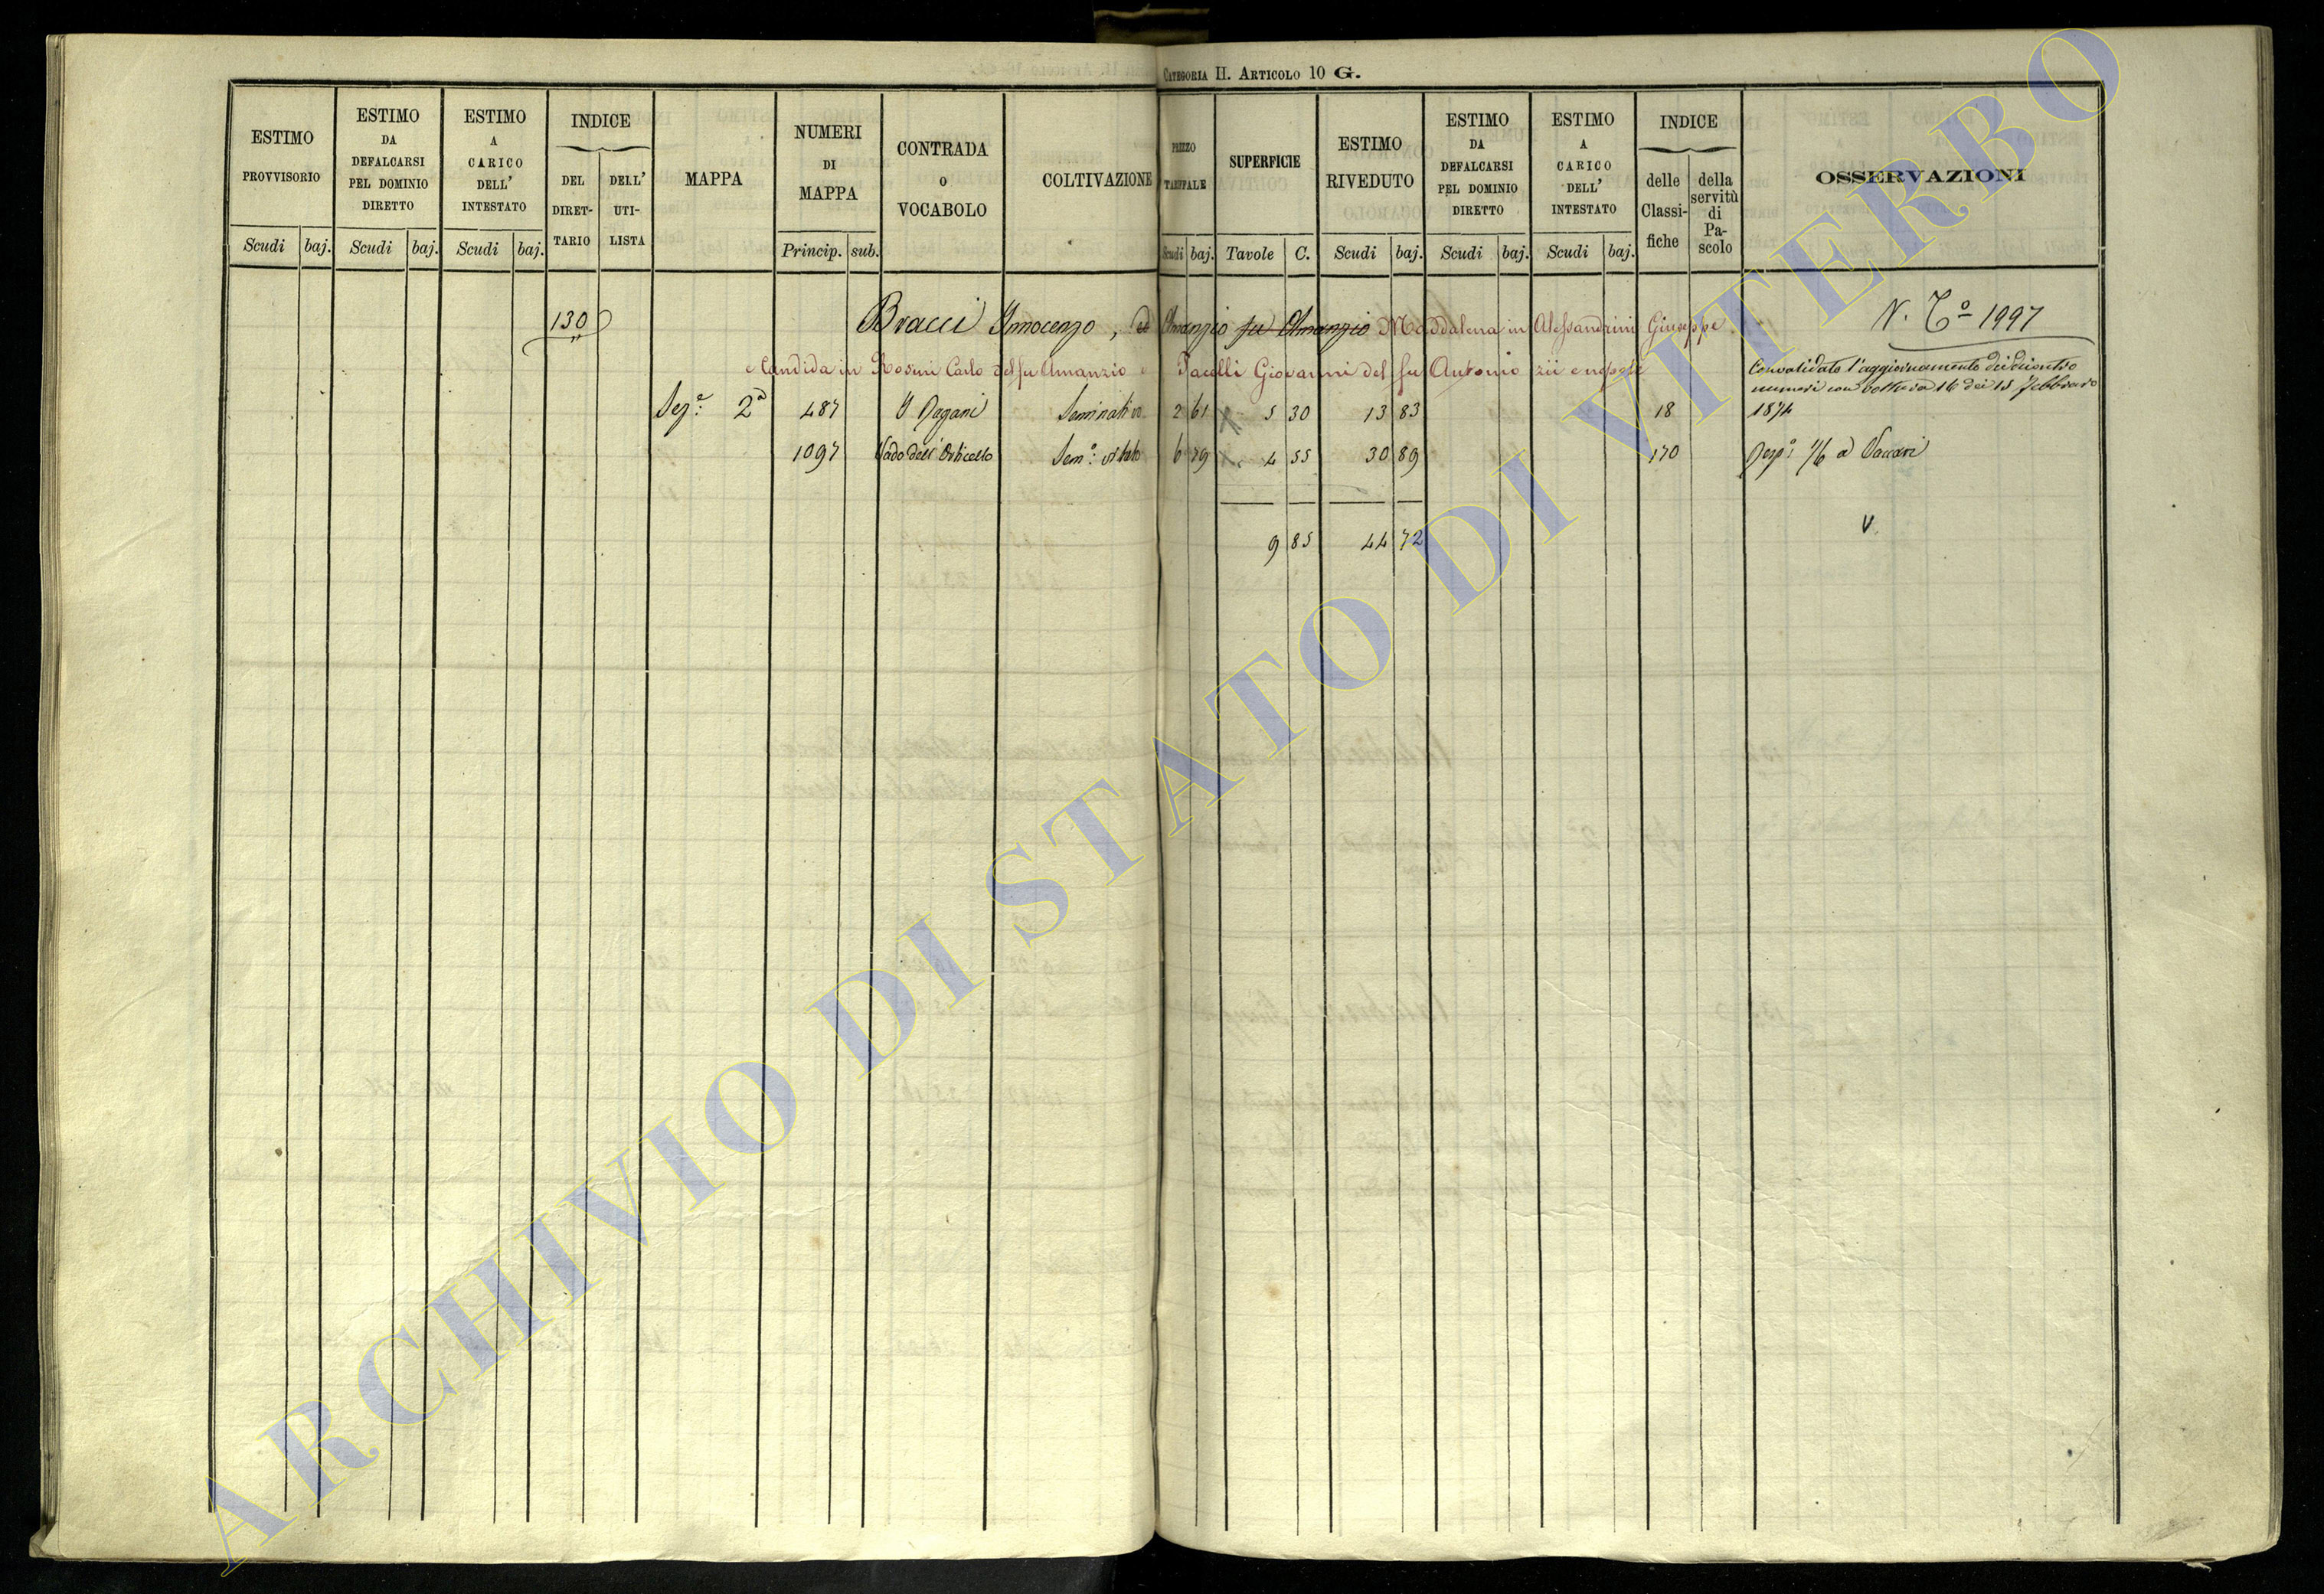 CATEGORIA II. ARTICOLO 10 G.
ESTIMO PROVVISORIO
Scudi baj.
ESTIMO DA DEFALCARSI PEL DOMINIO DIRETTO
Scudi baj.
ESTIMO A CARICO DELL' INTESTATO
Scudi baj.
INDICE
DEL DIRET-
TARIO
DELL' UTI-
LISTA
MAPPA
NUMERI DI MAPPA
Princip. sub.
CONTRADA O VOCABOLO
COLTIVAZIONE
PREZZO TARIFFALE
Scudi baj.
SUPERFICIE
Tavole C.
ESTIMO RIVEDUTO
Scudi baj.
ESTIMO DA DEFALCARSI PEL DOMINIO DIRETTO
Scudi baj.
ESTIMO A CARICO DELL' INTESTATO
Scudi baj.
INDICE
delle Classi-
fiche
della servitù di Pa-
scolo
OSSERVAZIONI
130 Bracci Innocenzo, ed Amanzio fu Amanzio Maddalena in Alessandrini Giuseppe N. To 1997
e Candida in Rosini Carlo del fu Amanzio e Pacelli Giovanni del fu Antonio zii e nepote
Convalidato l'aggiornamento
numeri con voltura 16 dei 15 Febbraro
1874
Sez.e 2a 487 I Pagani Seminativo 2 61 5 30 13 83 18
1097 Vado dell'Orticello Sem.o 6 79 4 55 30 89 170 1/6 a Vaccari
9 85 44 72
V
ARCHIVIO DI STATO DI VITERBO